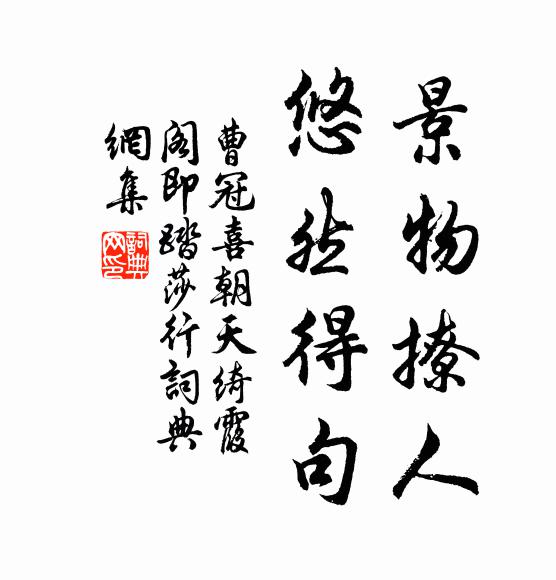 景物撩人
悠然得句
曹冠喜朝天綺霞
閣即踏莎行詞典
網集
詞典
网印